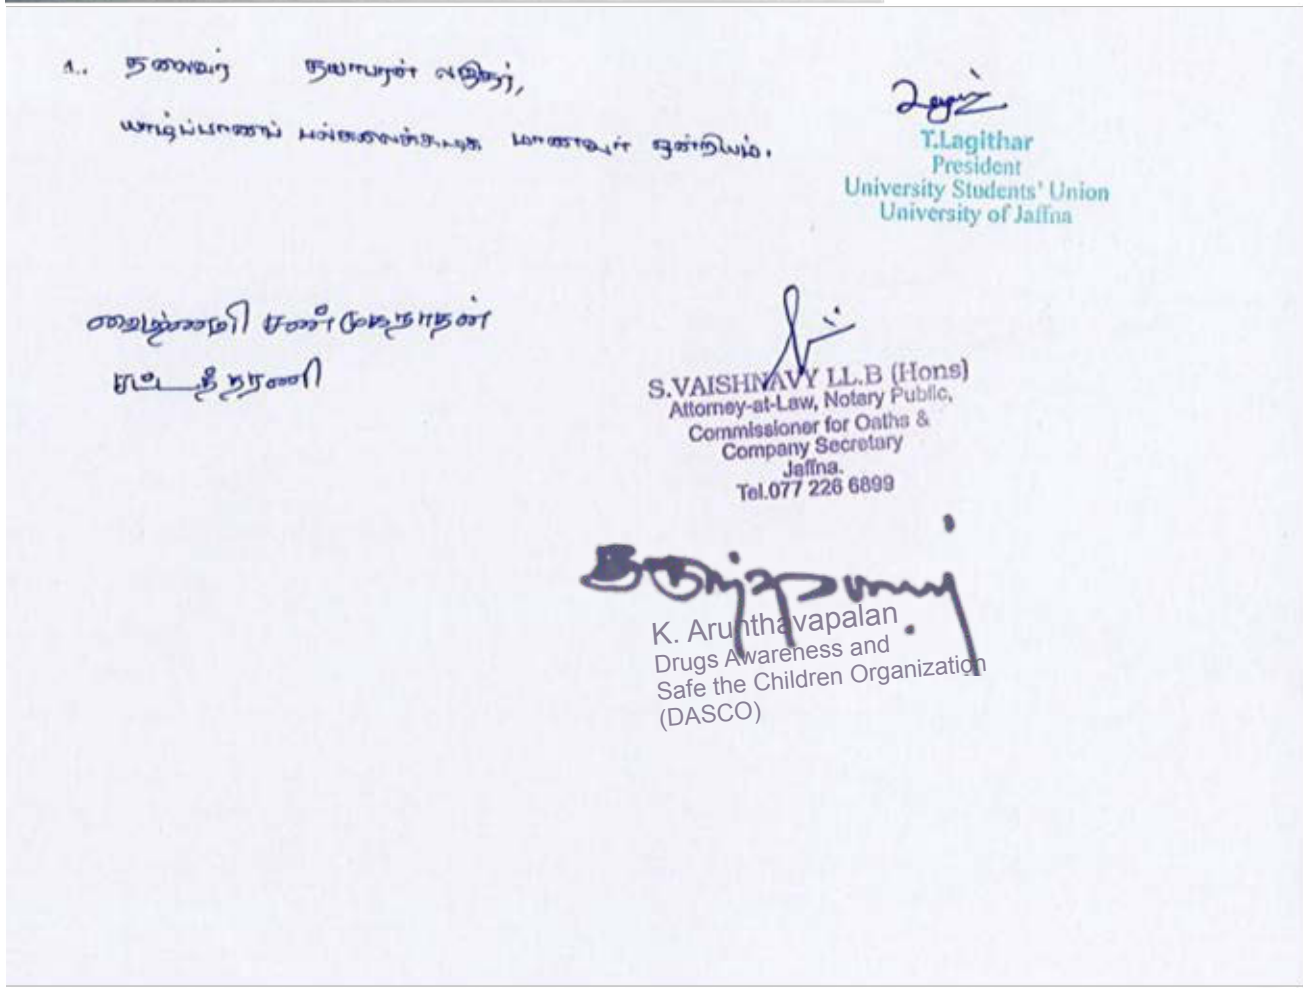 1.. தலைவர் தயாபரன் லஜிதர்,
யாழ்ப்பாணப் பல்கலைக்கழக மாணவர் ஒன்றியம்.
T.Lagithar
President
University Students' Union
University of Jaffna
வைஷ்ணவி சண்முகநாதன்
சட்டத்தரணி
S.VAISHNAVY LL.B (Hons)
Attorney-at-Law, Notary Public,
Commissioner for Oaths &
Company Secretary
Jaffna.
Tel.077 226 6899
K. Arunthavapalan
Drugs Awareness and
Safe the Children Organization
(DASCO)